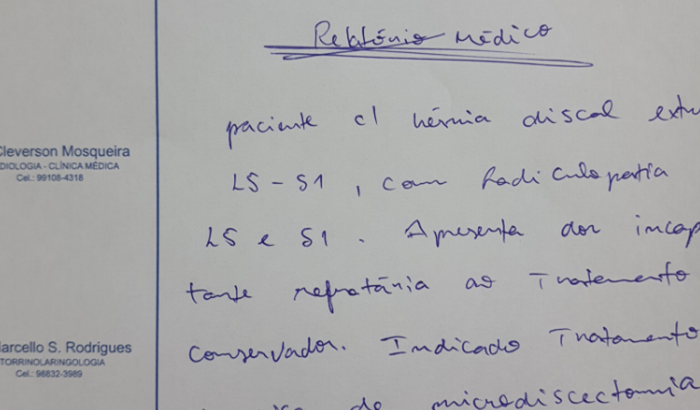 Relatório Médico
paciente c/ hérnia discal extru
L5-S1, com Radiculopatia
L5 e S1. Apresenta dor incap
tante refratária ao Tratamento
Conservador. Indicado Tratamento
de microdiscectomia
Cleverson Mosqueira
DIOLOGIA - CLÍNICA MÉDICA
Cel.: 99108-4318
arcello S. Rodrigues
TORRINOLARINGOLOGIA
Cel.: 98832-3989